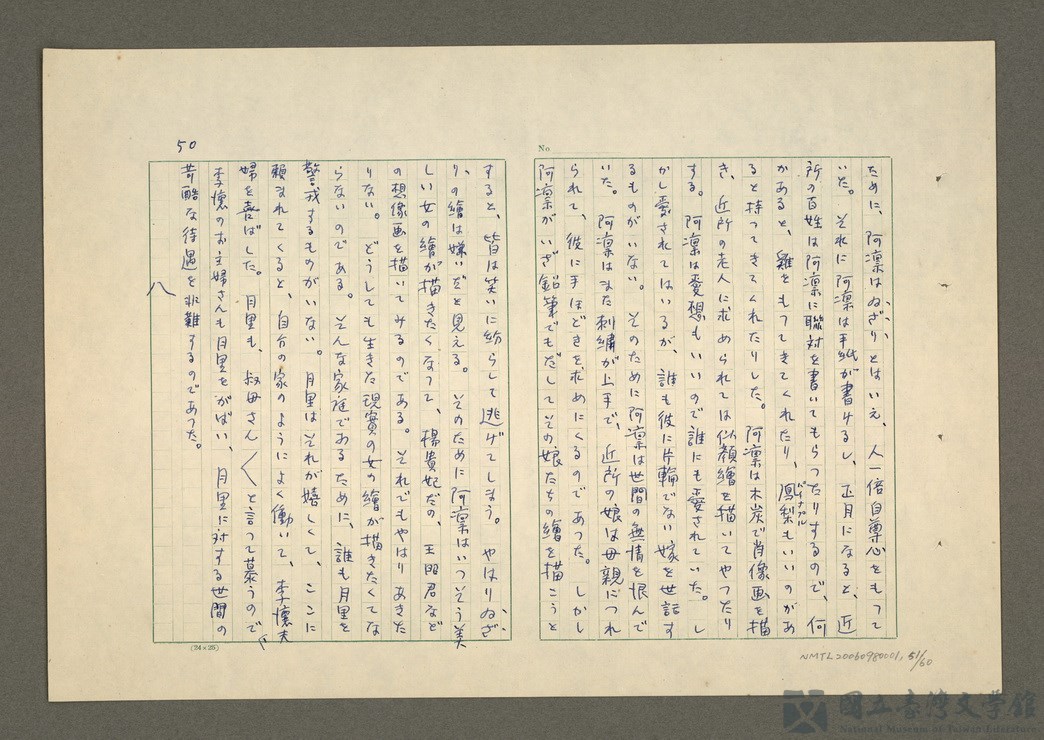 No.
ために、阿凛はゐざりとはいえ、人一倍自尊心をもつて
いた。それに阿凛は手紙が書けるし、正月になると、近
所の百姓は阿凛に聯対を書いてもらつたりするので、何
かあると、雞をもつてきてくれたり、鳳梨もいいのがあ
パイナプル
ると持つてきてくれたりした。阿凛は木炭で肖像画を描
き、近所の老人に求められては似顔繪を描いてやつたり
する。阿凛は愛想もいいので誰にも愛されていた。し
かし愛されてはいるが、誰も彼に片輪でない嫁を世話す
るものがいない。そのために阿凛は世間の無情を恨んで
いた。阿凛はまた刺繍が上手で、近所の娘は母親につれ
られて、彼に手ほどきを求めにくるのであつた。しかし
阿凛がいざ鉛筆でもだしてその娘たちの繪を描こうと
すると、皆は笑いに紛らして逃げてしまう。やはりゐざ
り、の繪は嫌いだと見える。そのために阿凛はいつそう美
しい女の繪が描きたくなつて、楊貴妃だの、王昭君など
の想像画を描いてみるのである。それでもやはりあきた
りない。どうしても生きた現實の女の繪が描きたくてな
らないのである。そんな家庭であるために、誰も月里を
警戒するものがいない。月里はそれが嬉しくて、ここに
頼まれてくると、自分の家のようによく働いて、李懷夫
婦を喜ばした。月里も、叔母さん〱と言つて慕うので
李懷のお主婦さんも月里をかばい、月里に対する世間の
苛酷な待遇を非難するのであつた。
八
50
(24×25)
NMTL20060980001, 51/60
國立臺灣文學館
National Museum of Taiwan Literature